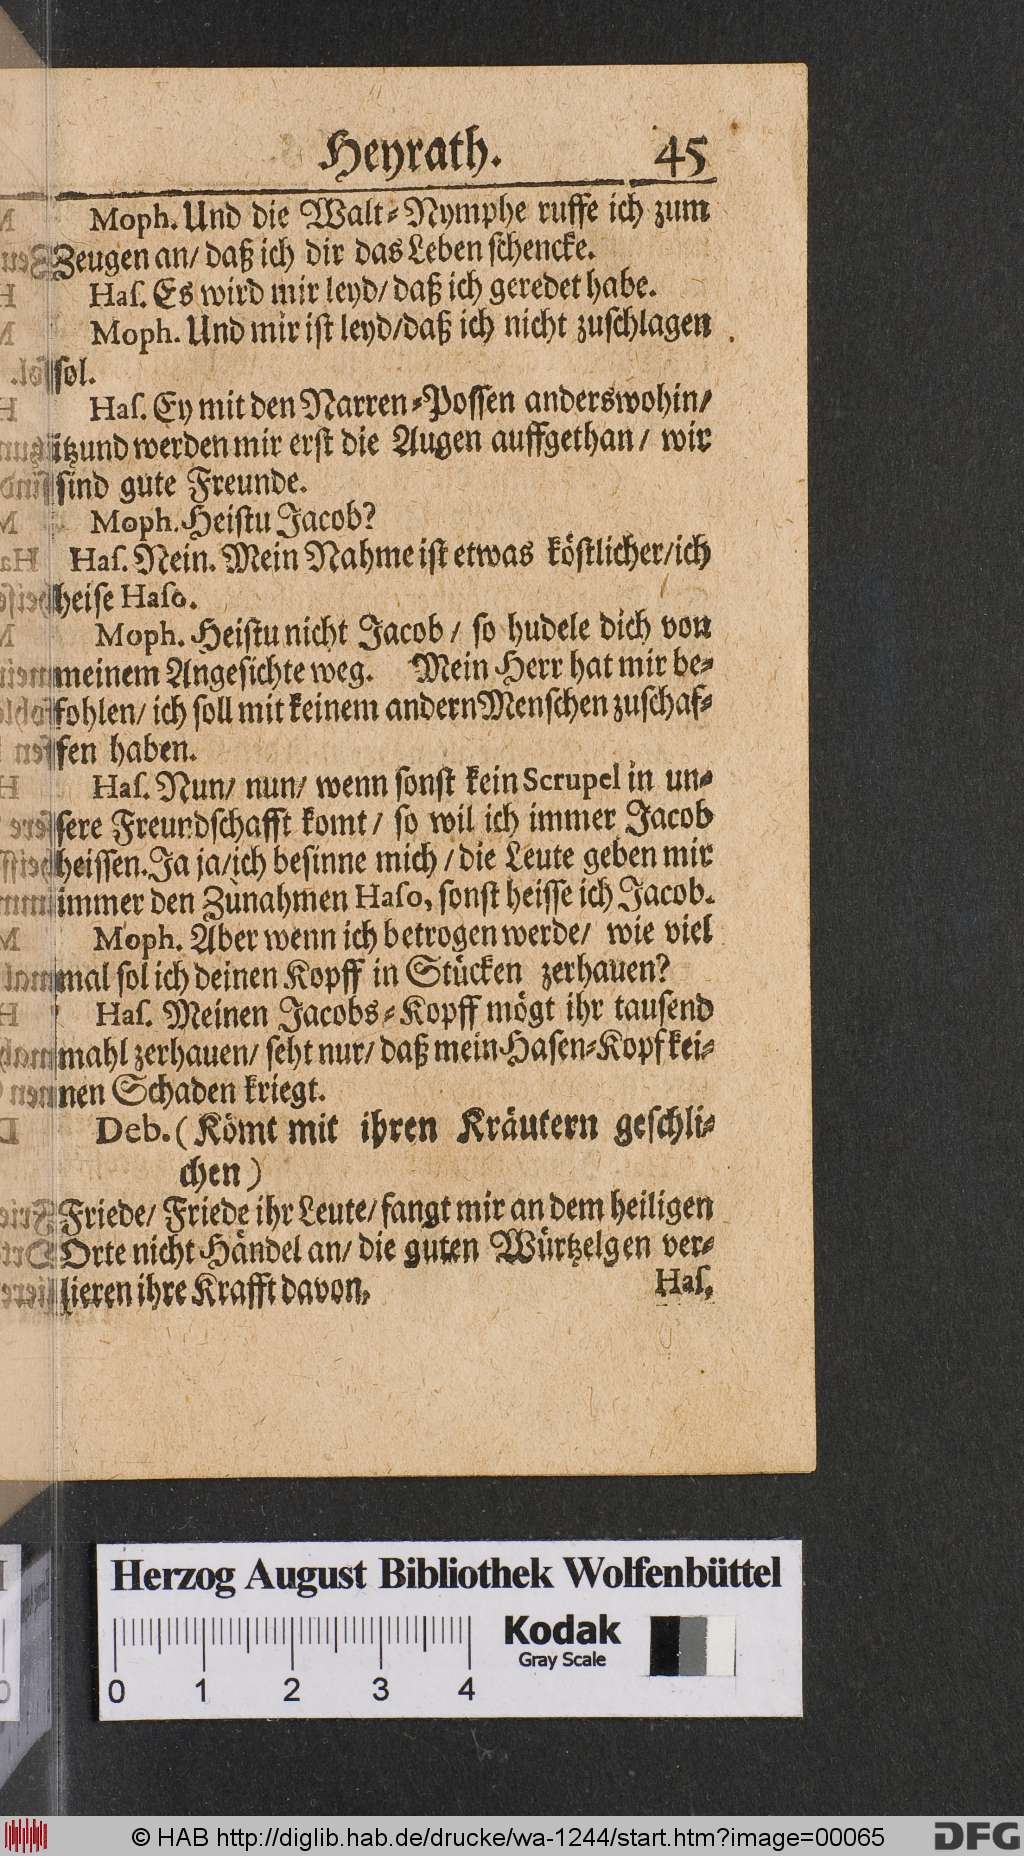 Heyrath. 45
Moph. Und die Walt-Nymphe ruffe ich zum
Zeugen an/ daß ich dir das Leben schencke.
Has. Es wird mir leyd/ daß ich geredet habe.
Moph. Und mir ist leyd/ daß ich nicht zuschlagen
sol.
Has. Ey mit den Narren-Possen anderswohin/
itzund werden mir erst die Augen auffgethan/ wir
sind gute Freunde.
Moph. Heistu Jacob?
Has. Nein. Mein Nahme ist etwas köstlicher/ ich
heise Haso.
Moph. Heistu nicht Jacob/ so hudele dich von
meinem Angesichte weg. Mein Herr hat mir be-
fohlen/ ich soll mit keinem andern Menschen zuschaf-
fen haben.
Has. Nun/ nun/ wenn sonst kein Scrupel in un-
sere Freundschafft komt/ so wil ich immer Jacob
heissen. Ja ja/ ich besinne mich/ die Leute geben mir
immer den Zunahmen Haso, sonst heisse ich Jacob.
Moph. Aber wenn ich betrogen werde/ wie viel
mal sol ich deinen Kopff in Stücken zerhauen?
Has. Meinen Jacobs-Kopff mögt ihr tausend
mahl zerhauen/ seht nur/ daß mein Hasen-Kopf kei-
nen Schaden kriegt.
Deb. (Kömt mit ihren Kräutern geschli-
chen)
Friede/ Friede ihr Leute/ fangt mir an dem heiligen
Orte nicht Händel an/ die guten Würtzelgen ver-
lieren ihre Krafft davon,
Has.
Herzog August Bibliothek Wolfenbüttel
Kodak
Gray Scale
0 1 2 3 4
© HAB http://diglib.hab.de/drucke/wa-1244/start.htm?image=00065
DFG